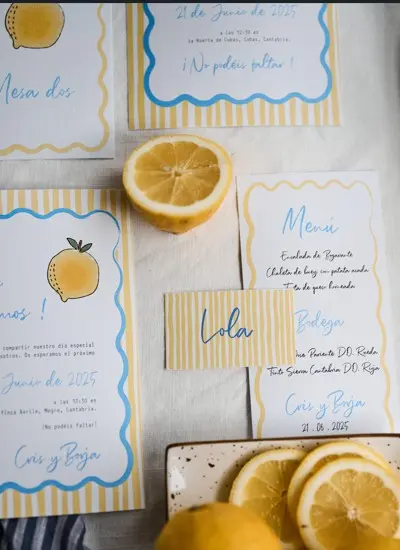 Mesa dos
21 de Junio de 2025
a las 12:30 en
la Huerta de Cubas, Cubas, Cantabria.
¡No podéis faltar!
mos !
compartir nuestro día especial
osotros. Os esperamos el próximo
Junio de 2025
a las 12:30 en
Finca Aerlie, Mogro, Cantabria.
¡No podéis faltar!
Cris y Borja
Lola
Menú
Ensalada de Bogavante
Chuleta de buey con patata asada
Tarta de queso horneada
Bodega
Pariente D.O. Rueda
Tinto Sierra Cantabria D.O. Rioja
Cris y Borja
21 . 06 . 2025